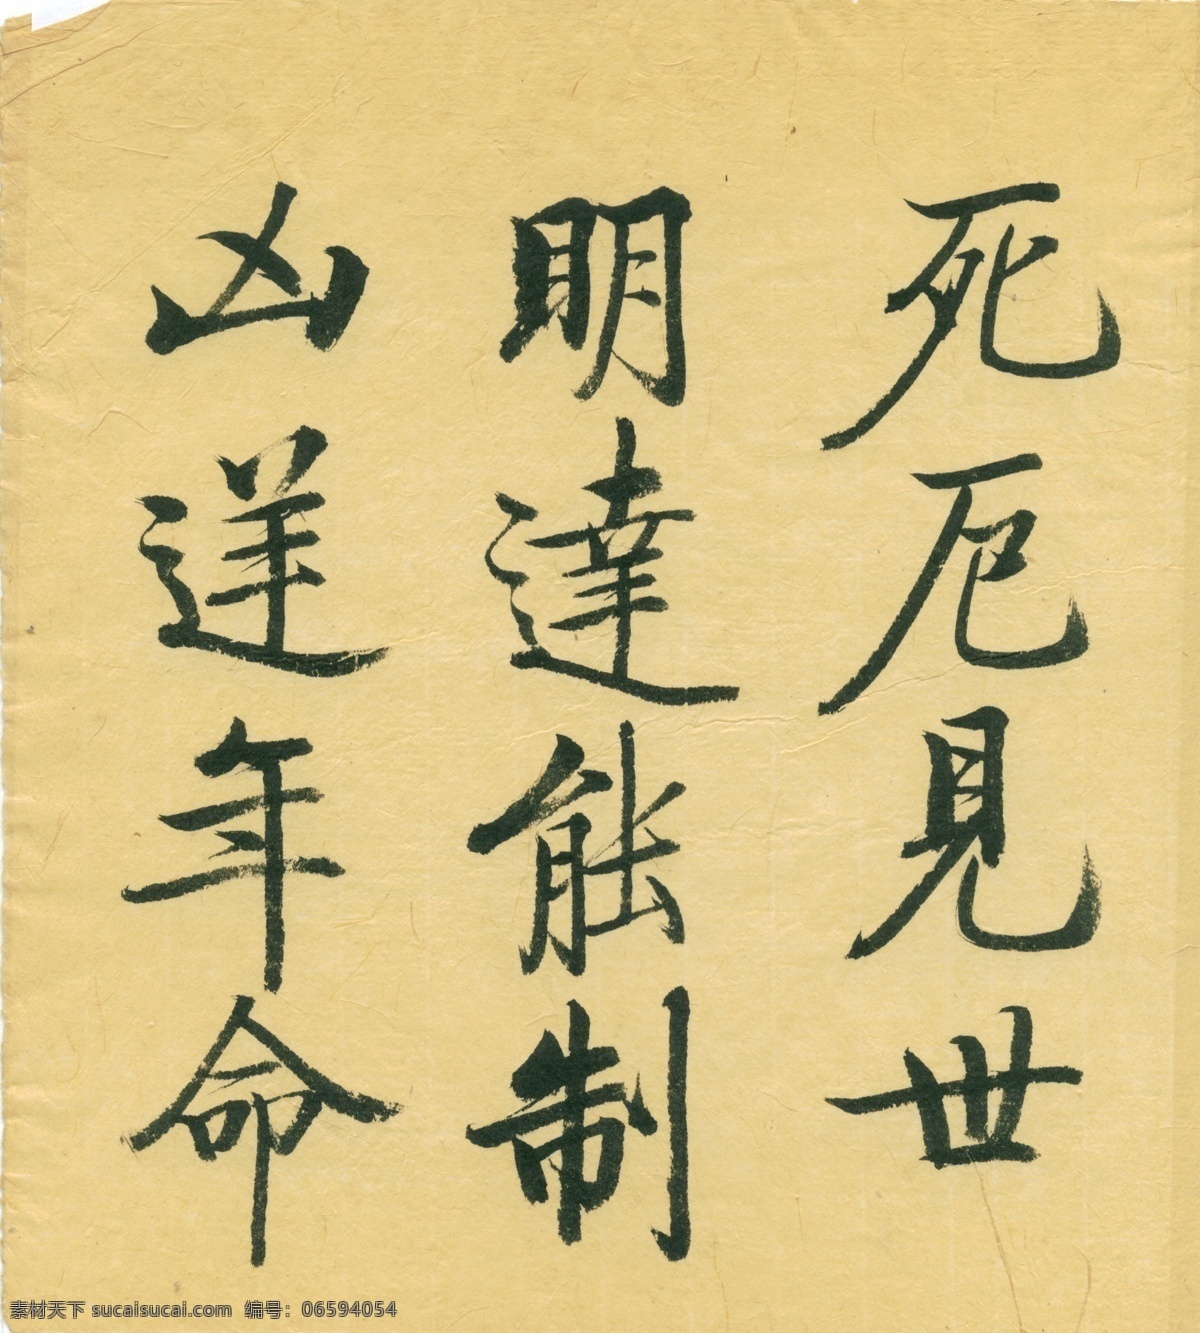 死厄見世
明達能制
凶逆年命
素材天下 sucaisucai.com 编号：06594054